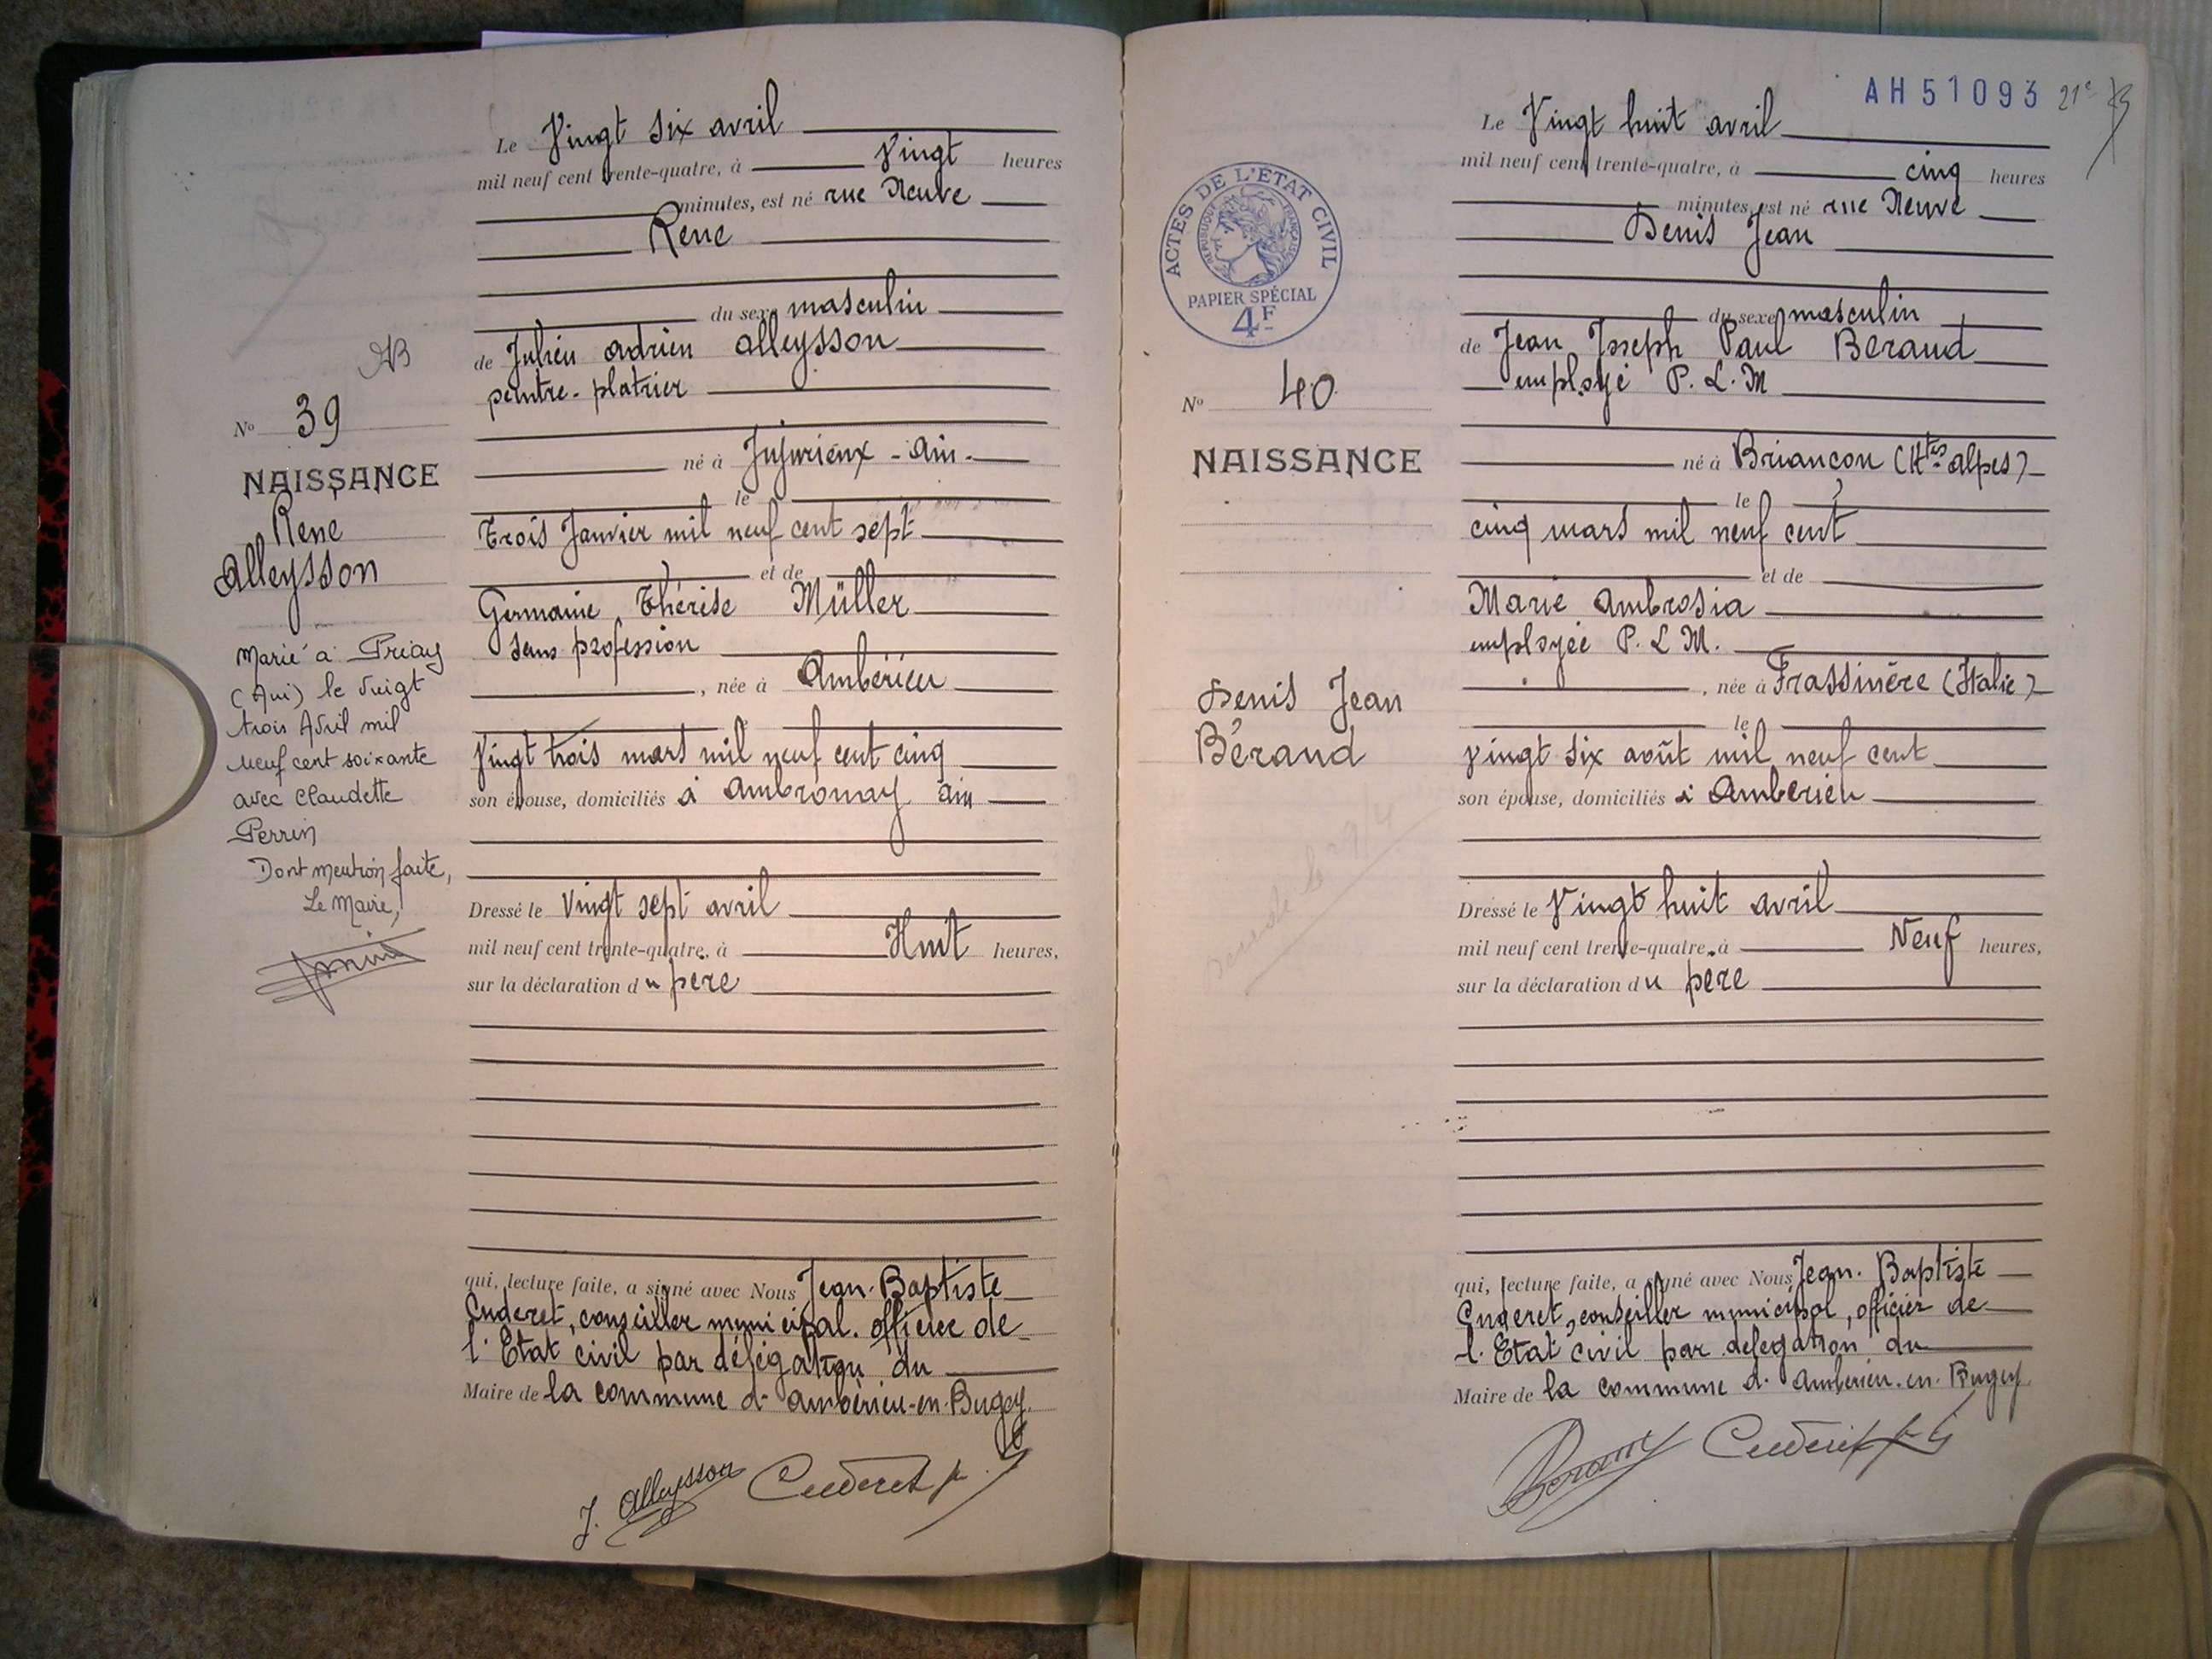 Le Vingt six avril
mil neuf cent trente-quatre, à Vingt heures
minutes, est né rue Neuve
René
du sexe masculin
de Julien adrien alleysson
peintre-platrier
né à Jujurieux - Ain -
le
trois Janvier mil neuf cent sept
et de
Germaine Thérèse Müller
sans profession
, née à Ambérieu
le
Vingt trois mars mil neuf cent cinq
son épouse, domiciliés à Ambronay Ain
Dressé le Vingt sept avril
mil neuf cent trente-quatre, à Huit heures,
sur la déclaration du père
qui, lecture faite, a signé avec Nous Jean-Baptiste
Cuderet, conseiller municipal. officier de
l'Etat civil par délégation du
Maire de la commune d'ambérieu-en-Bugey.
J. Alleysson Cuderet
AB
No 39
NAISSANCE
René
Alleysson
Marié à Priay
(Ain) le Vingt
trois Avril mil
neuf cent soixante
avec Claudette
Perrin
Dont mention faite,
Le Maire,
AH51093 21e
Le Vingt huit avril
mil neuf cent trente-quatre, à cinq heures
minutes, est né rue Neuve
Denis Jean
du sexe masculin
de Jean Joseph Paul Beraud
employé P.L.M
né à Briançon (Htes alpes)
le
cinq mars mil neuf cent
et de
Marie Ambrosia
employée P.L.M.
, née à Frassinère (Italie)
le
vingt six août mil neuf cent
son épouse, domiciliés à Ambérieu
Dressé le Vingt huit avril
mil neuf cent trente-quatre, à Neuf heures,
sur la déclaration du père
qui, lecture faite, a signé avec Nous Jean-Baptiste
Cuderet, conseiller municipal, officier de
l'Etat civil par délégation du
Maire de la commune d'ambérieu-en-Bugey
Beraud Cuderet
ACTES DE L'ÉTAT CIVIL
RÉPUBLIQUE FRANÇAISE
PAPIER SPÉCIAL
4F
No 40
NAISSANCE
Denis Jean
Béraud